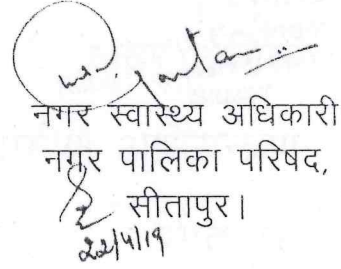 नगर स्वास्थ्य अधिकारी
नगर पालिका परिषद,
सीतापुर।
22/4/19